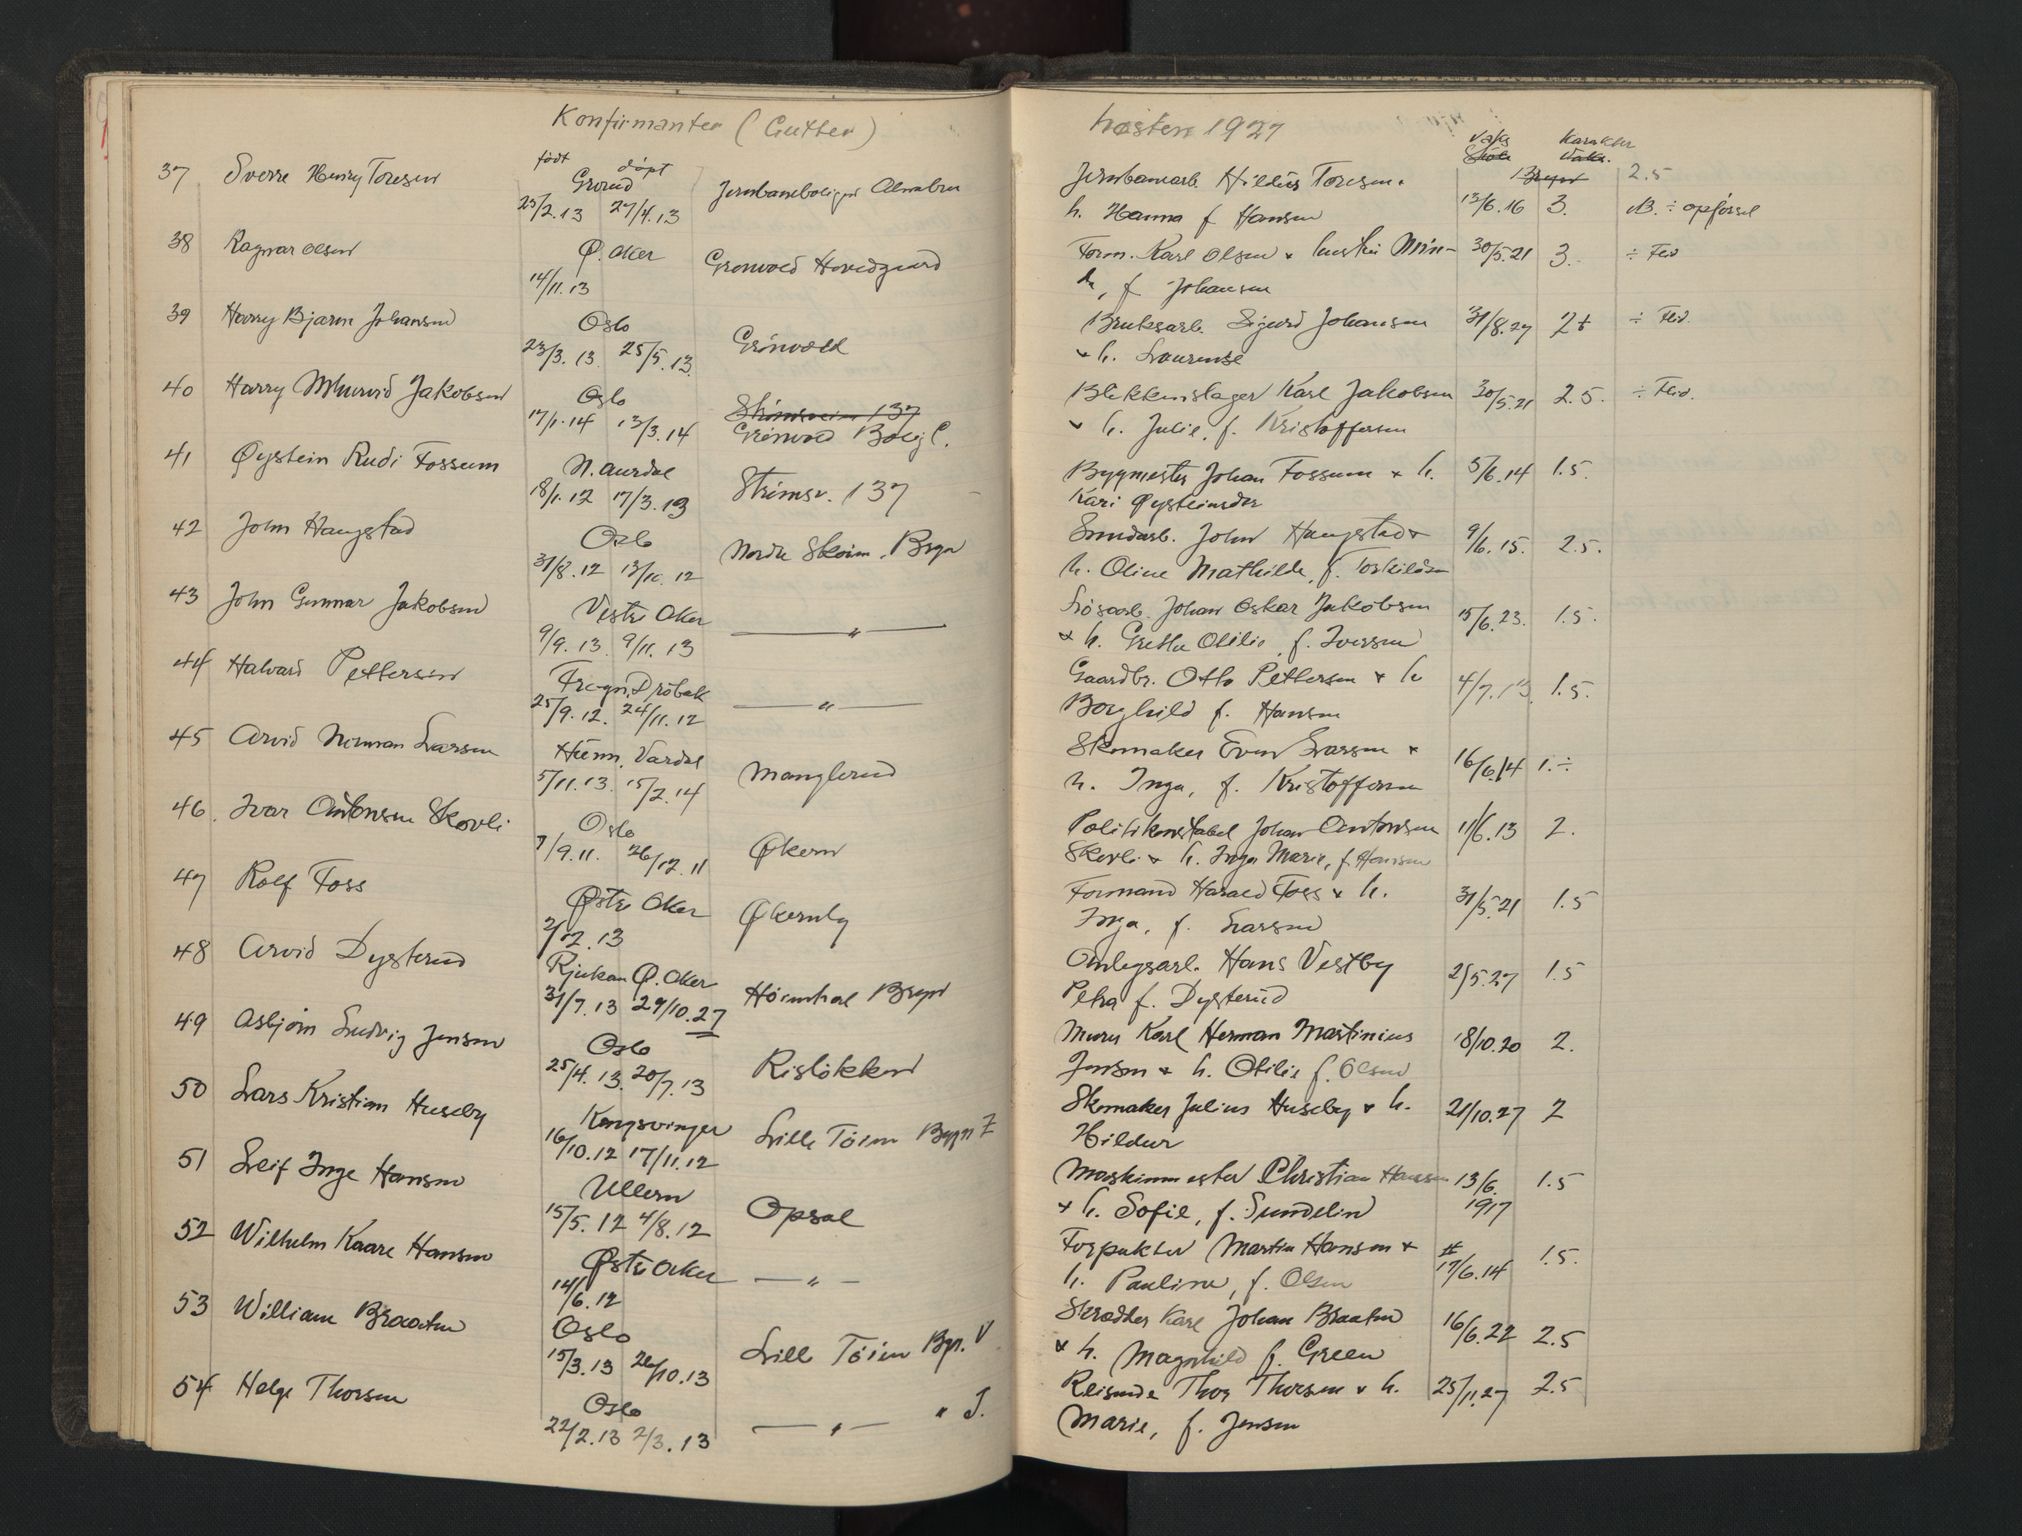 Konfirmanter (Gutter)
født døpt
37 Sverre Henry Toresen Grorud Jernbaneboliger Alnabru
23/2.13 27/4.13
38 Ragnar Olsen Ø. Aker Grønvold Hovedgaard
14/11.13
39 Harry Bjarne Johansen Oslo Grönvold
23/3.13 25/5.13
40 Harry Jakobsen Oslo Strömsveien 137
17/1.14 13/3.14 Grönvold Bolig C.
41 Øystein Rudi Fossum N. Aurdal Strömsv. 137
18/1.12 17/3.13
42 John Haugstad Oslo Nordre Skøien, Bryn
31/8.12 13/10.12
43 John Gunnar Jakobsen Vestre Aker — " —
9/9.13 9/11.13
44 Halvard Pettersen Frogn, Dröbak — " —
25/9.12. 24/11.12
45 Arvid Norman Larsen Hunn, Vardal Manglerud
5/11.13. 15/2.14
46. Ivar Antonsen Skovli Oslo Økern
7/9.11. 26/12.11
47 Rolf Foss Østre Aker Økernby
2/12.13
48 Arvid Dysterud Rjukan Ø. Aker Höienhal Bryn
31/7.13 29/10.27
49 Asbjörn Ludvig Jensen Oslo Rislökken
25/4.13. 20/7.13
50 Lars Kristian Huseby Kongsvinger Lille Töien Bygn Z
16/10.12 17/11.12
51 Leif Inge Hansen Ullern Opsal
15/5.12 4/8.12
52 Wilhelm Kaare Hansen Østre Aker — " —
14/6.12
53 William Braaten Oslo Lille Töien Bgn. V
15/3.13 26/10.13
54 Helge Thorsen Oslo — " — " J.
22/2.13 2/3.13
høsten 1927
Vaks Karakter
Skole Vaks.
Jernbanearb. Hildus Toresen + Bryn 2.5
h. Hanna f. Hansen 13/6.16 3. NB. ÷ opførsel
Form. Karl Olsen + hustru Min- 30/5.21 3. ÷ Flid
da, f. Johansen
Bruksarb. Sigurd Johansen 31/8.27 2+ ÷ Flid.
+ h. Laurense
Blikkenslager Karl Jakobsen 30/5.21 2.5. ÷ Flid.
+ h. Julie, f. Kristoffersen
Bygmester Johan Fossum + h. 5/6.14 1.5.
Kari Øysteinsdtr
John Haugstad + 9/6.15. 2.5.
h. Oline Mathilde, f. Torkildsen
Lösarb. Johan Oskar Jakobsen 15/6.23. 1.5.
+ h. Grethe Otilie, f. Iversen
Gaardbr. Otto Pettersen + h. 4/7.13. 1.5.
Borghild f. Hansen
Skomaker Even Larsen + 16/6.14 1.÷
h. Inga, f. Kristoffersen
Politikonstabel Johan Antonsen 11/6.13 2.
Skovli + h. Inga Marie, f. Hansen
Formand Harald Foss + h. 31/5.21 1.5
Inga, f. Larsen
Anlegsarb. Hans Vestby 2/5.27 1.5
Petra f. Dysterud
Murer Karl Herman Martinius 18/10.20 2.
Jensen + h. Otilie f. Olsen
Skomaker Julius Huseby + h. 21/10.27 2
Hildur
Maskinmester Christian Hansen 13/6. 1.5
+ h. Sofie, f. Sundelin 1917
Forpakter Martin Hansen + 1.5.
h. Pauline, f. Olsen 17/6.14
Skrædder Karl Johan Braaten 16/6.22 2.5
+ h. Magnhild f. Green
Reisende Thor Thorsen + h. 25/11.27 2.5
Marie, f. Jensen